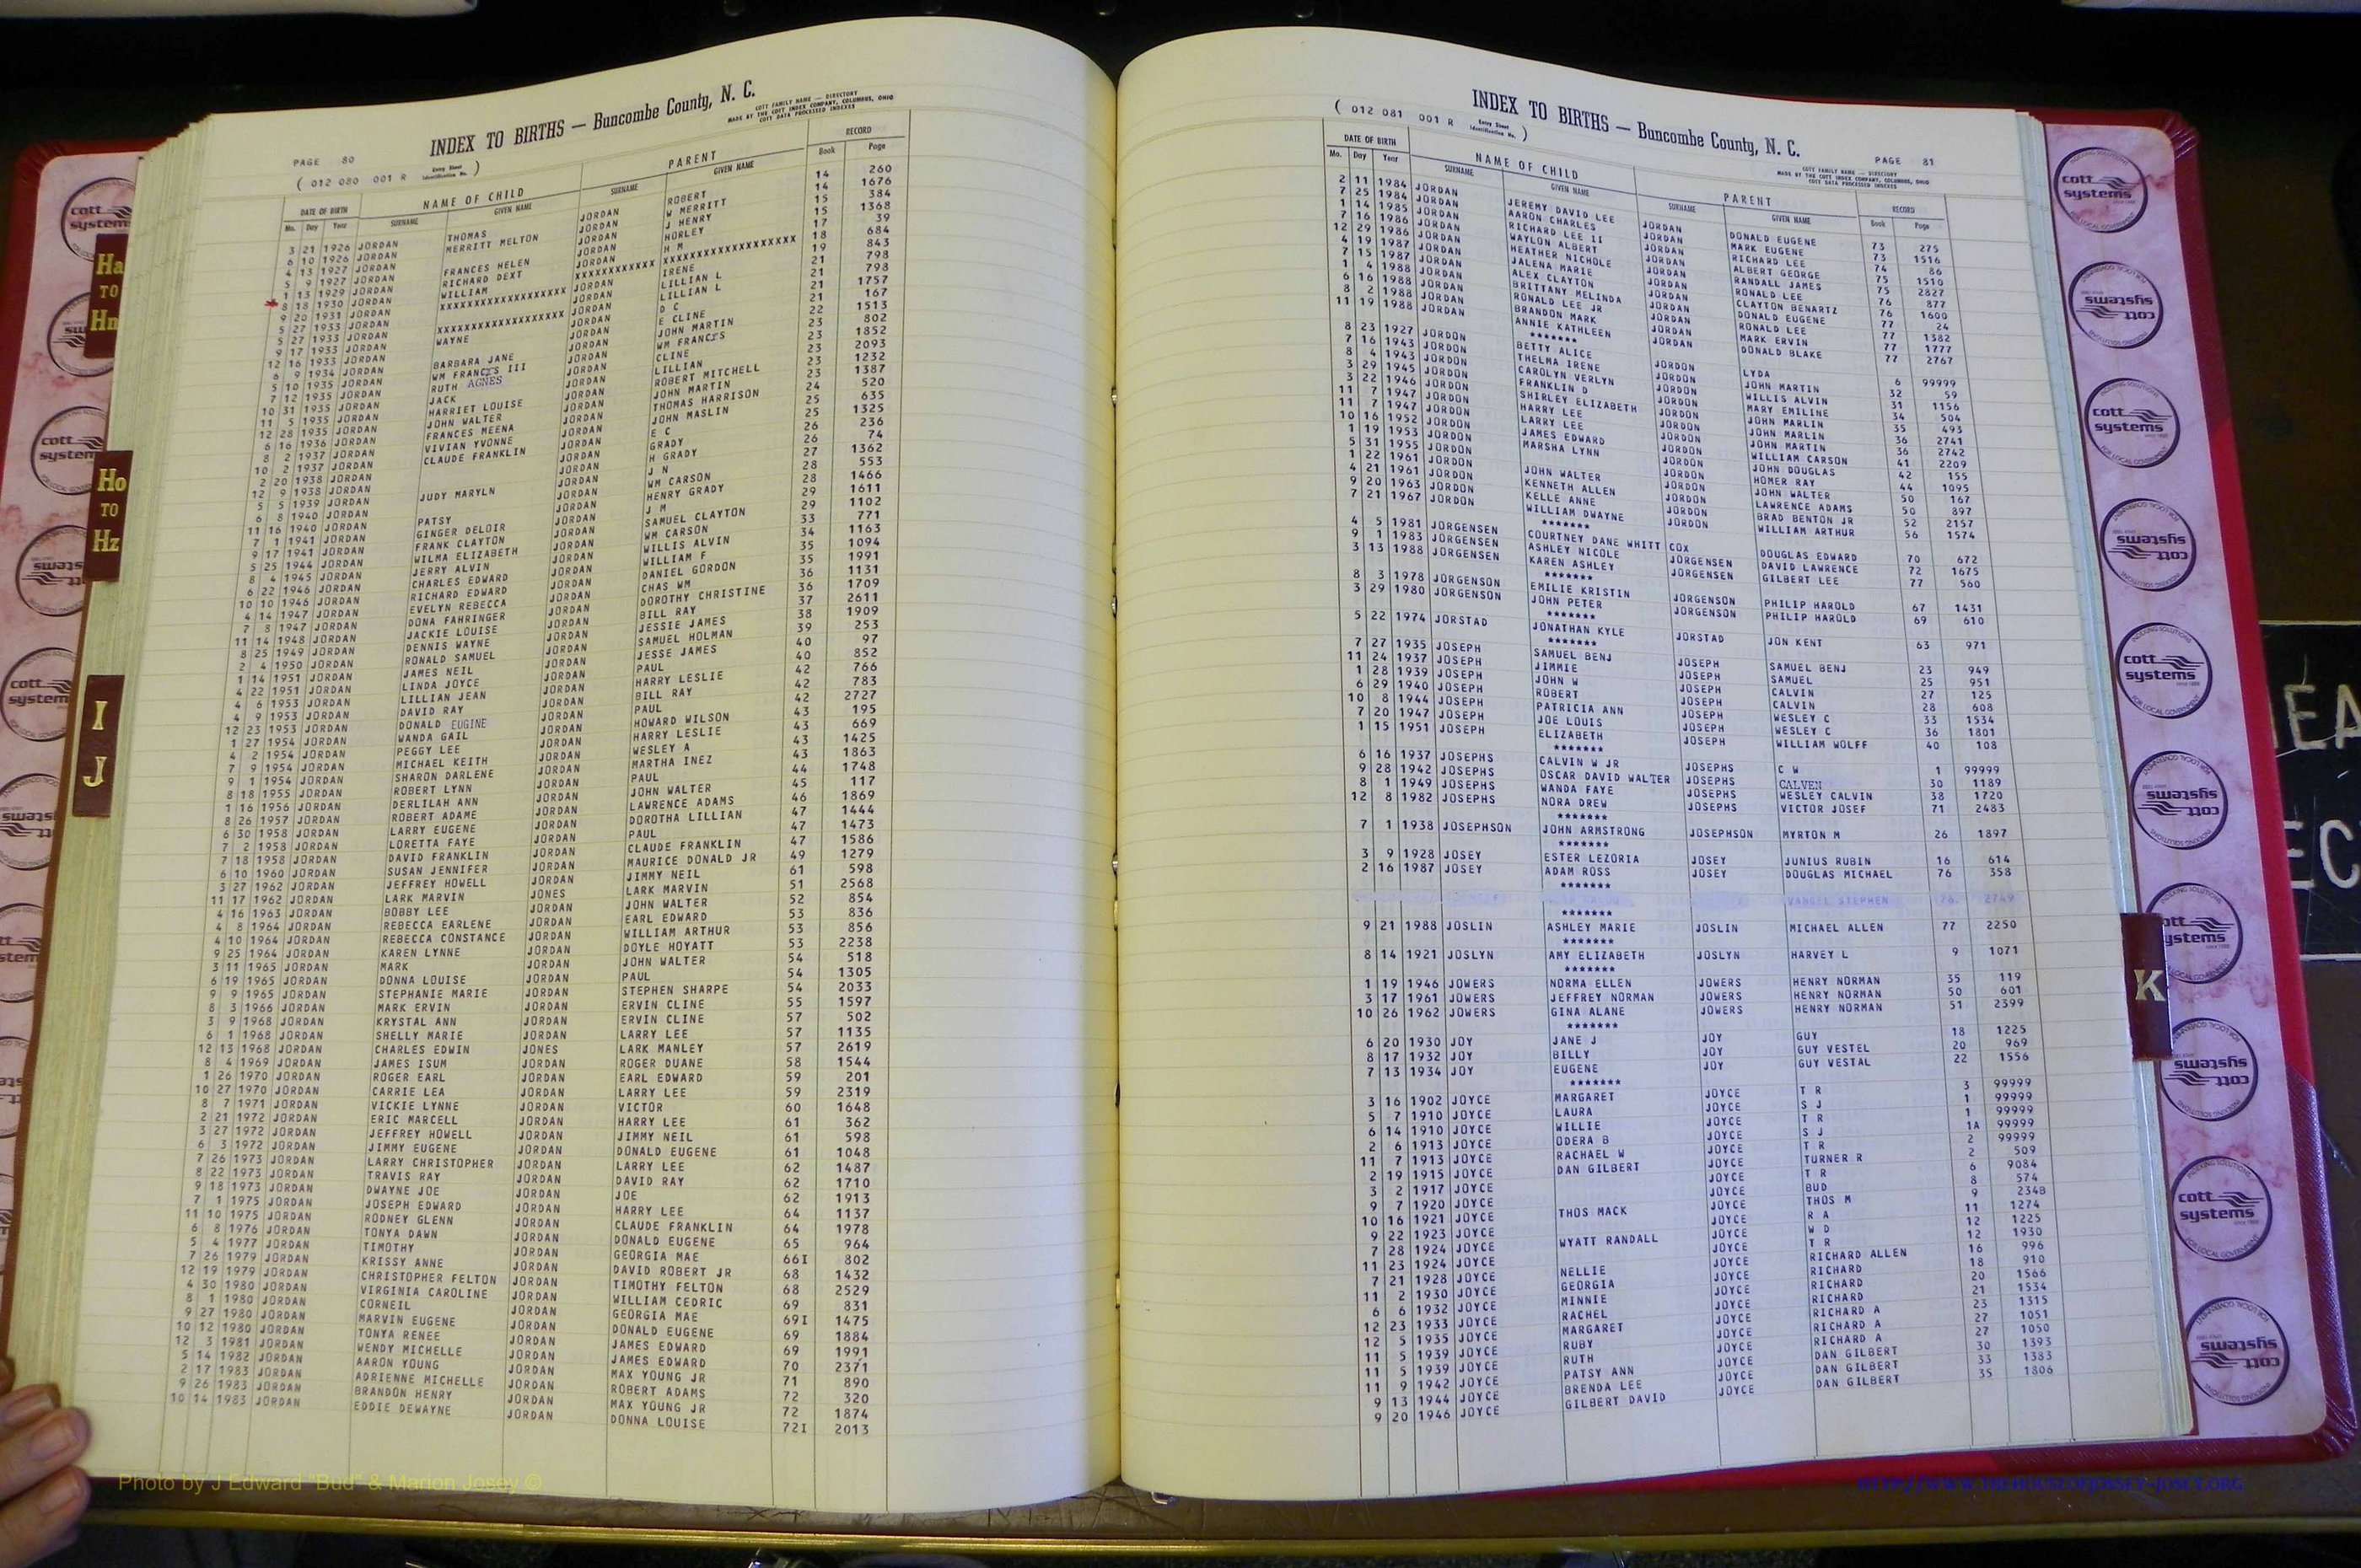 INDEX TO BIRTHS — Buncombe County, N. C.
COTT FAMILY NAME — DIRECTORY
MADE BY THE COTT INDEX COMPANY, COLUMBUS, OHIO
COTT DATA PROCESSED INDEXES
PAGE 80
( 012 080 001 R Entry Sheet Identification No. )
DATE OF BIRTH NAME OF CHILD PARENT RECORD
Mo. Day Year SURNAME GIVEN NAME SURNAME GIVEN NAME Book Page
3 21 1926 JORDAN THOMAS JORDAN ROBERT 14 260
6 10 1926 JORDAN MERRITT MELTON JORDAN W MERRITT 14 1676
4 13 1927 JORDAN JORDAN J HENRY 15 384
5 9 1927 JORDAN FRANCES HELEN JORDAN HORLEY 15 1368
1 13 1929 JORDAN RICHARD DEXT JORDAN H M 17 39
8 18 1930 JORDAN WILLIAM XXXXXXXXXXXX XXXXXXXXXXXXXXXXXXXX 18 684
9 20 1931 JORDAN XXXXXXXXXXXXXXXXXXX JORDAN IRENE 19 843
5 27 1933 JORDAN JORDAN LILLIAN L 21 798
5 27 1933 JORDAN XXXXXXXXXXXXXXXXXXX JORDAN LILLIAN L 21 798
9 17 1933 JORDAN WAYNE JORDAN D C 21 1757
12 16 1933 JORDAN JORDAN E CLINE 21 167
6 9 1934 JORDAN BARBARA JANE JORDAN JOHN MARTIN 22 1513
5 10 1935 JORDAN WM FRANCIS III JORDAN WM FRANCIS 23 802
7 12 1935 JORDAN RUTH AGNES JORDAN CLINE 23 1852
10 31 1935 JORDAN JACK JORDAN LILLIAN 23 2093
11 5 1935 JORDAN HARRIET LOUISE JORDAN ROBERT MITCHELL 23 1232
12 28 1935 JORDAN JOHN WALTER JORDAN JOHN MARTIN 23 1387
6 16 1936 JORDAN FRANCES MEENA JORDAN THOMAS HARRISON 24 520
8 2 1937 JORDAN VIVIAN YVONNE JORDAN JOHN MASLIN 25 635
10 2 1937 JORDAN CLAUDE FRANKLIN JORDAN E C 25 1325
2 20 1938 JORDAN JORDAN GRADY 26 236
12 9 1938 JORDAN JORDAN H GRADY 26 74
5 5 1939 JORDAN JUDY MARYLN JORDAN J N 27 1362
6 8 1940 JORDAN JORDAN WM CARSON 28 553
11 16 1940 JORDAN PATSY JORDAN HENRY GRADY 28 1466
7 1 1941 JORDAN GINGER DELOIR JORDAN J M 29 1611
9 17 1941 JORDAN FRANK CLAYTON JORDAN SAMUEL CLAYTON 29 1102
5 25 1944 JORDAN WILMA ELIZABETH JORDAN WM CARSON 33 771
8 4 1945 JORDAN JERRY ALVIN JORDAN WILLIS ALVIN 34 1163
6 22 1946 JORDAN CHARLES EDWARD JORDAN WILLIAM F 35 1094
10 10 1946 JORDAN RICHARD EDWARD JORDAN DANIEL GORDON 35 1991
4 14 1947 JORDAN EVELYN REBECCA JORDAN CHAS WM 36 1131
7 8 1947 JORDAN DONA FAHRINGER JORDAN DOROTHY CHRISTINE 36 1709
11 14 1948 JORDAN JACKIE LOUISE JORDAN BILL RAY 37 2611
8 25 1949 JORDAN DENNIS WAYNE JORDAN JESSIE JAMES 38 1909
2 4 1950 JORDAN RONALD SAMUEL JORDAN SAMUEL HOLMAN 39 253
1 14 1951 JORDAN JAMES NEIL JORDAN JESSE JAMES 40 97
4 22 1951 JORDAN LINDA JOYCE JORDAN PAUL 40 852
4 6 1953 JORDAN LILLIAN JEAN JORDAN HARRY LESLIE 42 766
4 9 1953 JORDAN DAVID RAY JORDAN BILL RAY 42 783
12 23 1953 JORDAN DONALD EUGINE JORDAN PAUL 42 2727
1 27 1954 JORDAN WANDA GAIL JORDAN HOWARD WILSON 43 195
4 2 1954 JORDAN PEGGY LEE JORDAN HARRY LESLIE 43 669
7 9 1954 JORDAN MICHAEL KEITH JORDAN WESLEY A 43 1425
9 1 1954 JORDAN SHARON DARLENE JORDAN MARTHA INEZ 43 1863
8 18 1955 JORDAN ROBERT LYNN JORDAN PAUL 44 1748
1 16 1956 JORDAN DERLILAH ANN JORDAN JOHN WALTER 45 117
8 26 1957 JORDAN ROBERT ADAME JORDAN LAWRENCE ADAMS 46 1869
6 30 1958 JORDAN LARRY EUGENE JORDAN DOROTHA LILLIAN 47 1444
7 2 1958 JORDAN LORETTA FAYE JORDAN PAUL 47 1473
7 18 1958 JORDAN DAVID FRANKLIN JORDAN CLAUDE FRANKLIN 47 1586
6 10 1960 JORDAN SUSAN JENNIFER JORDAN MAURICE DONALD JR 49 1279
3 27 1962 JORDAN JEFFREY HOWELL JORDAN JIMMY NEIL 61 598
11 17 1962 JORDAN LARK MARVIN JONES LARK MARVIN 51 2568
4 16 1963 JORDAN BOBBY LEE JORDAN JOHN WALTER 52 854
4 8 1964 JORDAN REBECCA EARLENE JORDAN EARL EDWARD 53 836
4 10 1964 JORDAN REBECCA CONSTANCE JORDAN WILLIAM ARTHUR 53 856
9 25 1964 JORDAN KAREN LYNNE JORDAN DOYLE HOYATT 53 2238
3 11 1965 JORDAN MARK JORDAN JOHN WALTER 54 518
6 19 1965 JORDAN DONNA LOUISE JORDAN PAUL 54 1305
9 9 1965 JORDAN STEPHANIE MARIE JORDAN STEPHEN SHARPE 54 2033
8 3 1966 JORDAN MARK ERVIN JORDAN ERVIN CLINE 55 1597
3 9 1968 JORDAN KRYSTAL ANN JORDAN ERVIN CLINE 57 502
6 1 1968 JORDAN SHELLY MARIE JORDAN LARRY LEE 57 1135
12 13 1968 JORDAN CHARLES EDWIN JONES LARK MANLEY 57 2619
8 4 1969 JORDAN JAMES ISUM JORDAN ROGER DUANE 58 1544
1 26 1970 JORDAN ROGER EARL JORDAN EARL EDWARD 59 201
10 27 1970 JORDAN CARRIE LEA JORDAN LARRY LEE 59 2319
8 7 1971 JORDAN VICKIE LYNNE JORDAN VICTOR 60 1648
2 21 1972 JORDAN ERIC MARCELL JORDAN HARRY LEE 61 362
3 27 1972 JORDAN JEFFREY HOWELL JORDAN JIMMY NEIL 61 598
6 3 1972 JORDAN JIMMY EUGENE JORDAN DONALD EUGENE 61 1048
7 26 1973 JORDAN LARRY CHRISTOPHER JORDAN LARRY LEE 62 1487
8 22 1973 JORDAN TRAVIS RAY JORDAN DAVID RAY 62 1710
9 18 1973 JORDAN DWAYNE JOE JORDAN JOE 62 1913
7 1 1975 JORDAN JOSEPH EDWARD JORDAN HARRY LEE 64 1137
11 10 1975 JORDAN RODNEY GLENN JORDAN CLAUDE FRANKLIN 64 1978
6 8 1976 JORDAN TONYA DAWN JORDAN DONALD EUGENE 65 964
5 4 1977 JORDAN TIMOTHY JORDAN GEORGIA MAE 66I 802
7 26 1979 JORDAN KRISSY ANNE JORDAN DAVID ROBERT JR 68 1432
12 19 1979 JORDAN CHRISTOPHER FELTON JORDAN TIMOTHY FELTON 68 2529
4 30 1980 JORDAN VIRGINIA CAROLINE JORDAN WILLIAM CEDRIC 69 831
8 1 1980 JORDAN CORNEIL JORDAN GEORGIA MAE 69I 1475
9 27 1980 JORDAN MARVIN EUGENE JORDAN DONALD EUGENE 69 1884
10 12 1980 JORDAN TONYA RENEE JORDAN JAMES EDWARD 69 1991
12 3 1981 JORDAN WENDY MICHELLE JORDAN JAMES EDWARD 70 2371
5 14 1982 JORDAN AARON YOUNG JORDAN MAX YOUNG JR 71 890
2 17 1983 JORDAN ADRIENNE MICHELLE JORDAN ROBERT ADAMS 72 320
9 26 1983 JORDAN BRANDON HENRY JORDAN MAX YOUNG JR 72 1874
10 14 1983 JORDAN EDDIE DEWAYNE JORDAN DONNA LOUISE 72I 2013
INDEX TO BIRTHS — Buncombe County, N. C.
( 012 081 001 R Entry Sheet Identification No. )
PAGE 81
COTT FAMILY NAME — DIRECTORY
MADE BY THE COTT INDEX COMPANY, COLUMBUS, OHIO
COTT DATA PROCESSED INDEXES
DATE OF BIRTH NAME OF CHILD PARENT RECORD
Mo. Day Year SURNAME GIVEN NAME SURNAME GIVEN NAME Book Page
2 11 1984 JORDAN JEREMY DAVID LEE JORDAN DONALD EUGENE 73 275
7 25 1984 JORDAN AARON CHARLES JORDAN MARK EUGENE 73 1516
1 14 1985 JORDAN RICHARD LEE II JORDAN RICHARD LEE 74 86
7 16 1986 JORDAN WAYLON ALBERT JORDAN ALBERT GEORGE 75 1510
12 29 1986 JORDAN HEATHER NICHOLE JORDAN RANDALL JAMES 75 2827
4 19 1987 JORDAN JALENA MARIE JORDAN RONALD LEE 76 877
7 15 1987 JORDAN ALEX CLAYTON JORDAN CLAYTON BENARTZ 76 1600
1 4 1988 JORDAN BRITTANY MELINDA JORDAN DONALD EUGENE 77 24
6 16 1988 JORDAN RONALD LEE JR JORDAN RONALD LEE 77 1382
8 2 1988 JORDAN BRANDON MARK JORDAN MARK ERVIN 77 1777
11 19 1988 JORDAN ANNIE KATHLEEN JORDAN DONALD BLAKE 77 2767
*******
8 23 1927 JORDON BETTY ALICE JORDON LYDA 6 99999
7 16 1943 JORDON THELMA IRENE JORDON JOHN MARTIN 32 59
8 4 1943 JORDON CAROLYN VERLYN JORDON WILLIS ALVIN 31 1156
3 29 1945 JORDON FRANKLIN D JORDON MARY EMILINE 34 504
3 22 1946 JORDON SHIRLEY ELIZABETH JORDON JOHN MARLIN 35 493
11 7 1947 JORDON HARRY LEE JORDON JOHN MARLIN 36 2741
11 7 1947 JORDON LARRY LEE JORDON JOHN MARTIN 36 2742
10 16 1952 JORDON JAMES EDWARD JORDON WILLIAM CARSON 41 2209
1 19 1953 JORDON MARSHA LYNN JORDON JOHN DOUGLAS 42 155
5 31 1955 JORDON JORDON HOMER RAY 44 1095
1 22 1961 JORDON JOHN WALTER JORDON JOHN WALTER 50 167
4 21 1961 JORDON KENNETH ALLEN JORDON LAWRENCE ADAMS 50 897
9 20 1963 JORDON KELLE ANNE JORDON BRAD BENTON JR 52 2157
7 21 1967 JORDON WILLIAM DWAYNE JORDON WILLIAM ARTHUR 56 1574
*******
4 5 1981 JORGENSEN COURTNEY DANE WHITT COX DOUGLAS EDWARD 70 672
9 1 1983 JORGENSEN ASHLEY NICOLE JORGENSEN DAVID LAWRENCE 72 1675
3 13 1988 JORGENSEN KAREN ASHLEY JORGENSEN GILBERT LEE 77 560
*******
8 3 1978 JORGENSON EMILIE KRISTIN JORGENSON PHILIP HAROLD 67 1431
3 29 1980 JORGENSON JOHN PETER JORGENSON PHILIP HAROLD 69 610
*******
5 22 1974 JORSTAD JONATHAN KYLE JORSTAD JON KENT 63 971
*******
7 27 1935 JOSEPH SAMUEL BENJ JOSEPH SAMUEL BENJ 23 949
11 24 1937 JOSEPH JIMMIE JOSEPH SAMUEL 25 951
1 28 1939 JOSEPH JOHN W JOSEPH CALVIN 27 125
6 29 1940 JOSEPH ROBERT JOSEPH CALVIN 28 608
10 8 1944 JOSEPH PATRICIA ANN JOSEPH WESLEY C 33 1534
7 20 1947 JOSEPH JOE LOUIS JOSEPH WESLEY C 36 1801
1 15 1951 JOSEPH ELIZABETH JOSEPH WILLIAM WOLFF 40 108
*******
6 16 1937 JOSEPHS CALVIN W JR JOSEPHS C W 1 99999
9 28 1942 JOSEPHS OSCAR DAVID WALTER JOSEPHS CALVEN 30 1189
8 1 1949 JOSEPHS WANDA FAYE JOSEPHS WESLEY CALVIN 38 1720
12 8 1982 JOSEPHS NORA DREW JOSEPHS VICTOR JOSEF 71 2483
*******
7 1 1938 JOSEPHSON JOHN ARMSTRONG JOSEPHSON MYRTON M 26 1897
*******
3 9 1928 JOSEY ESTER LEZORIA JOSEY JUNIUS RUBIN 16 614
2 16 1987 JOSEY ADAM ROSS JOSEY DOUGLAS MICHAEL 76 358
*******
STEPHEN 76 2749
*******
9 21 1988 JOSLIN ASHLEY MARIE JOSLIN MICHAEL ALLEN 77 2250
*******
8 14 1921 JOSLYN AMY ELIZABETH JOSLYN HARVEY L 9 1071
*******
1 19 1946 JOWERS NORMA ELLEN JOWERS HENRY NORMAN 35 119
3 17 1961 JOWERS JEFFREY NORMAN JOWERS HENRY NORMAN 50 601
10 26 1962 JOWERS GINA ALANE JOWERS HENRY NORMAN 51 2399
*******
6 20 1930 JOY JANE J JOY GUY 18 1225
8 17 1932 JOY BILLY JOY GUY VESTEL 20 969
7 13 1934 JOY EUGENE JOY GUY VESTAL 22 1556
*******
3 16 1902 JOYCE MARGARET JOYCE T R 3 99999
5 7 1910 JOYCE LAURA JOYCE S J 1 99999
6 14 1910 JOYCE WILLIE JOYCE T R 1 99999
2 6 1913 JOYCE ODERA B JOYCE S J 1A 99999
11 7 1913 JOYCE RACHAEL W JOYCE T R 2 99999
2 19 1915 JOYCE DAN GILBERT JOYCE TURNER R 2 509
3 2 1917 JOYCE JOYCE T R 6 9084
9 7 1920 JOYCE JOYCE BUD 8 574
10 16 1921 JOYCE THOS MACK JOYCE THOS M 9 2348
9 22 1923 JOYCE JOYCE R A 11 1274
7 28 1924 JOYCE WYATT RANDALL JOYCE W D 12 1225
11 23 1924 JOYCE JOYCE T R 12 1930
7 21 1928 JOYCE NELLIE JOYCE RICHARD ALLEN 16 996
11 2 1930 JOYCE GEORGIA JOYCE RICHARD 18 910
6 6 1932 JOYCE MINNIE JOYCE RICHARD 20 1566
12 23 1933 JOYCE RACHEL JOYCE RICHARD 21 1534
12 5 1935 JOYCE MARGARET JOYCE RICHARD A 23 1315
11 5 1939 JOYCE RUBY JOYCE RICHARD A 27 1051
11 5 1939 JOYCE RUTH JOYCE RICHARD A 27 1050
11 9 1942 JOYCE PATSY ANN JOYCE DAN GILBERT 30 1393
9 13 1944 JOYCE BRENDA LEE JOYCE DAN GILBERT 33 1383
9 20 1946 JOYCE GILBERT DAVID JOYCE DAN GILBERT 35 1806
Ha TO Hn
Ho TO Hz
I J
K
cott systems
INDEXING SOLUTIONS FOR LOCAL GOVERNMENT
Photo by J Edward "Bud" & Marion Josey ©
HTTP://WWW.THEHOUSEOFJOSSEY-JOSEY.ORG